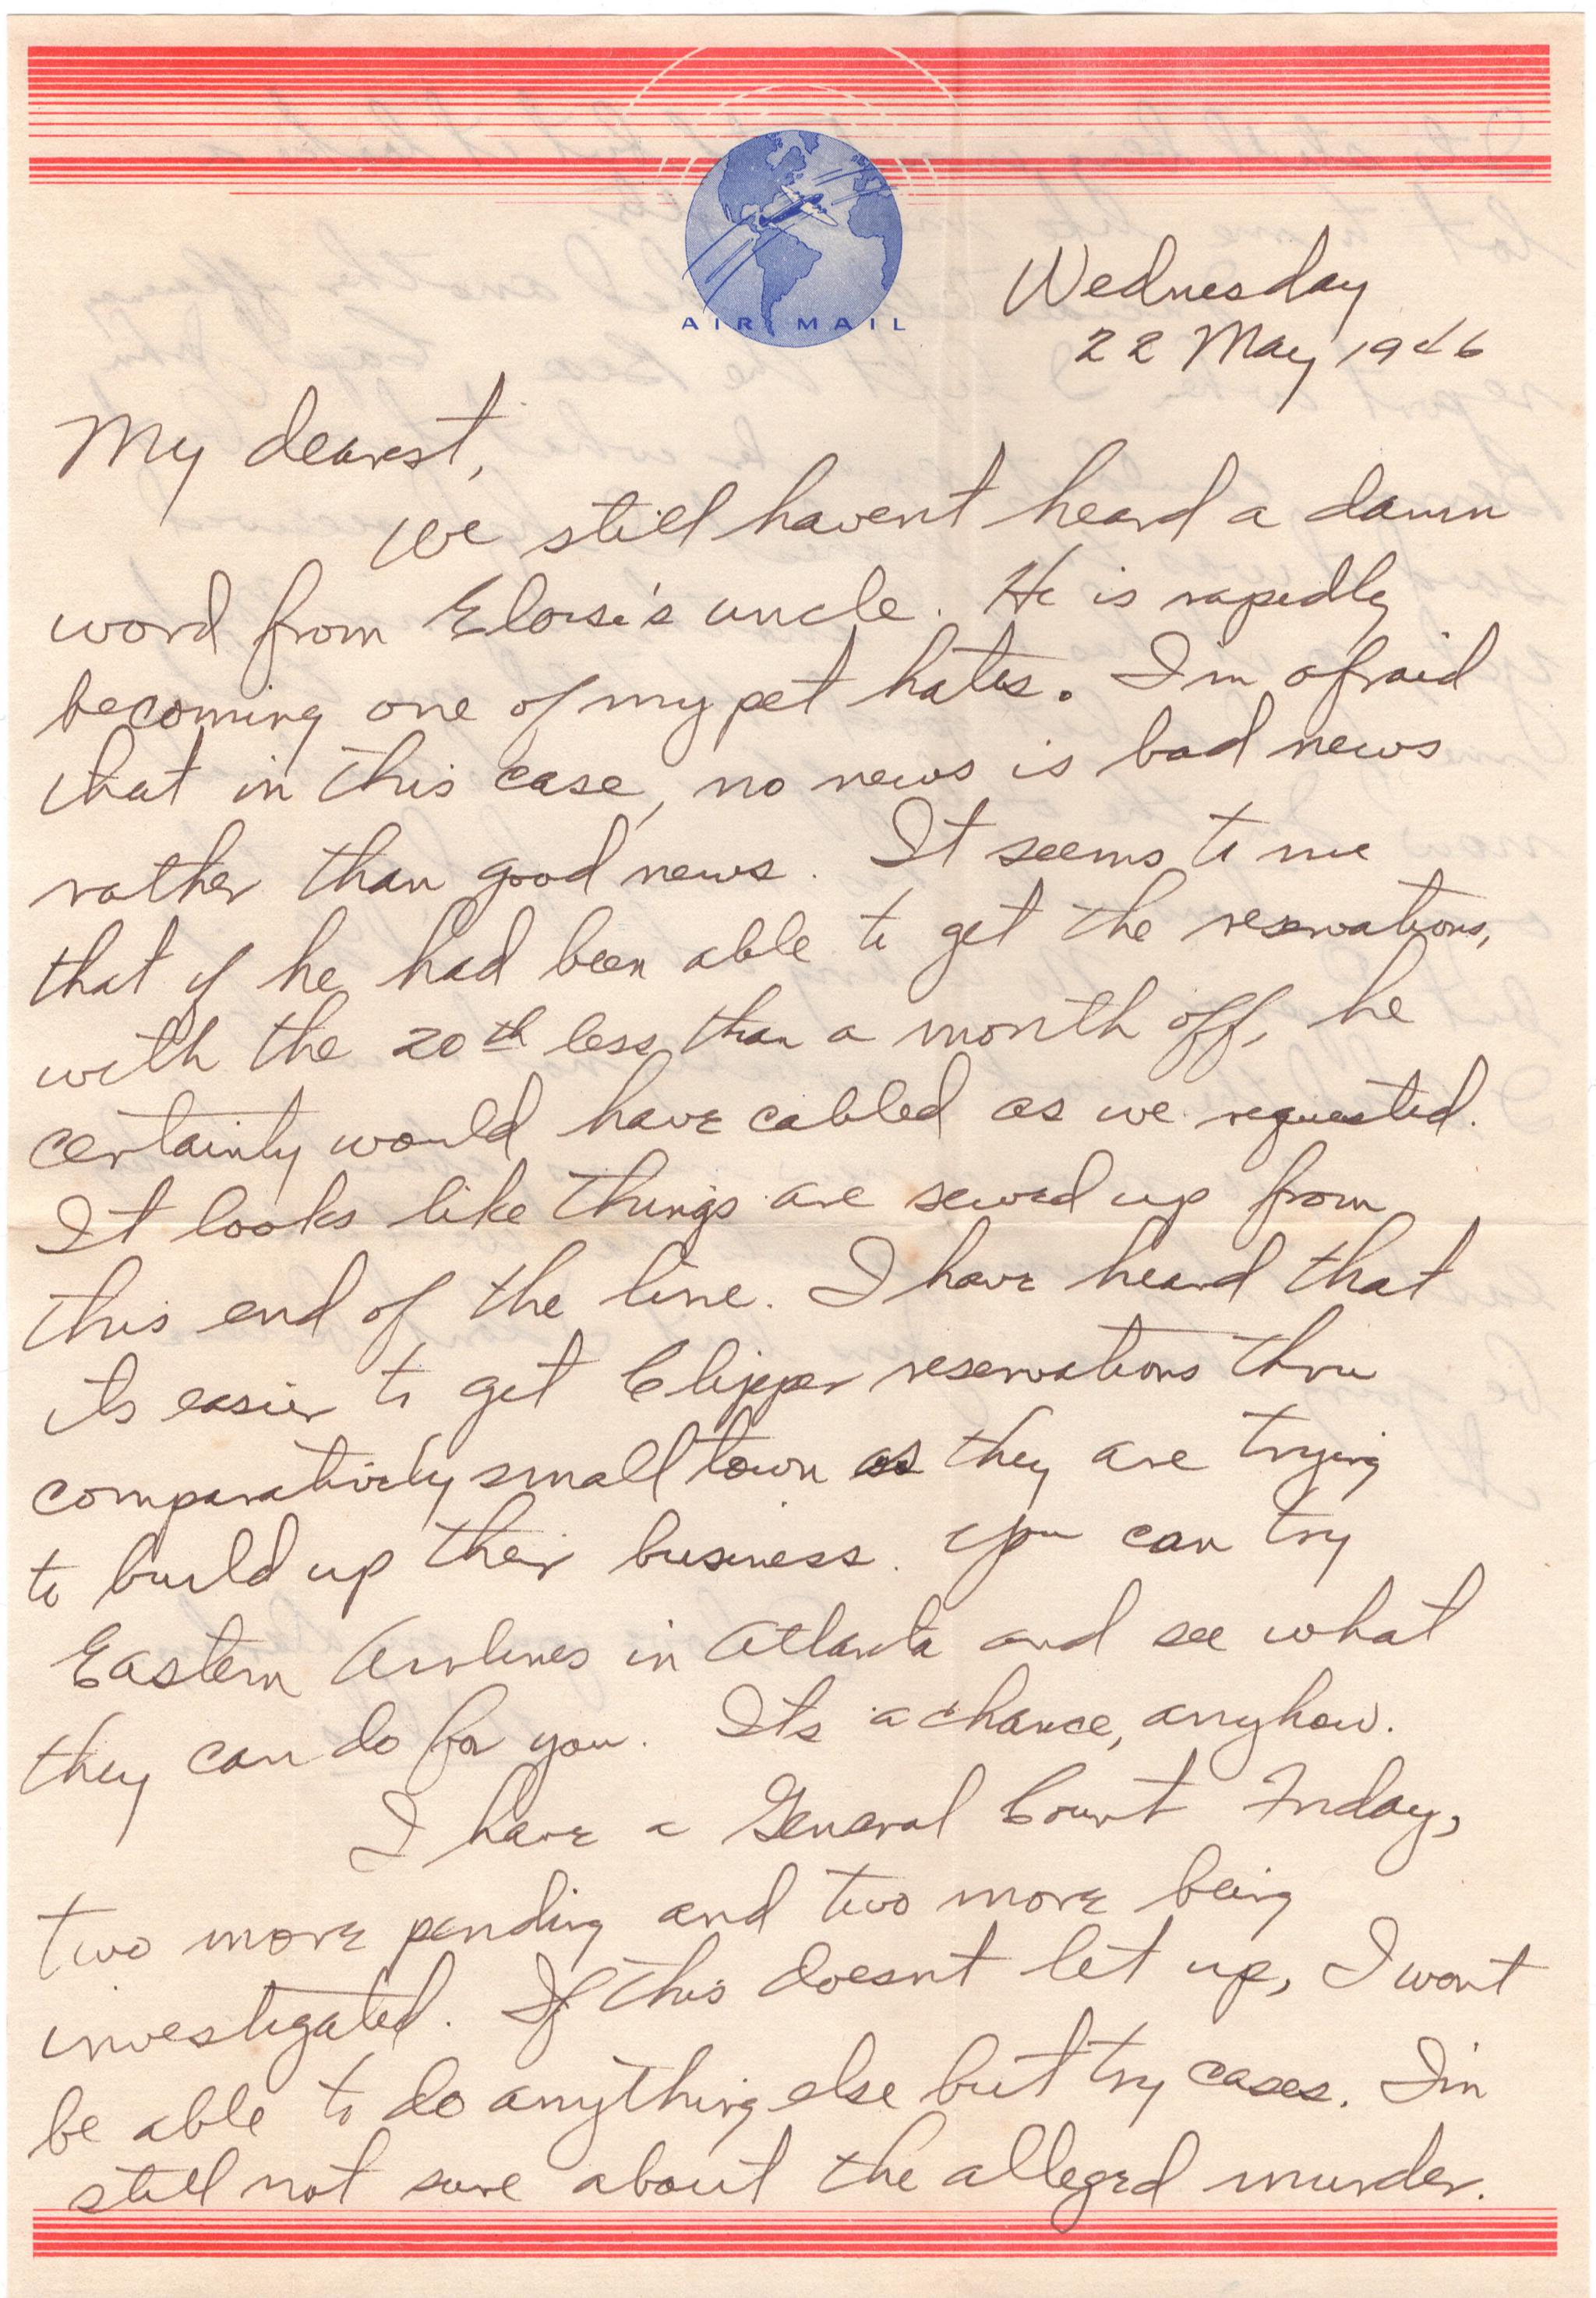 AIR MAIL
Wednesday
22 May 1946
My dearest,
We still havent heard a damn
word from Eloise's uncle. He is rapidly
becoming one of my pet hates. I'm afraid
that in this case, no news is bad news
rather than good news. It seems to me
that if he had been able to get the reservations,
with the 20th less than a month off, he
certainly would have cabled as we requested.
It looks like things are sewed up from
this end of the line. I have heard that
its easier to get Clipper reservations thru
comparatively small town as they are trying
to build up their business. You can try
Eastern Airlines in Atlanta and see what
they can do for you. Its a chance, anyhow.
I have a General Court Friday,
two more pending and two more being
investigated. If this doesnt let up, I wont
be able to do anything else but try cases. I'm
still not sure about the alleged murder.